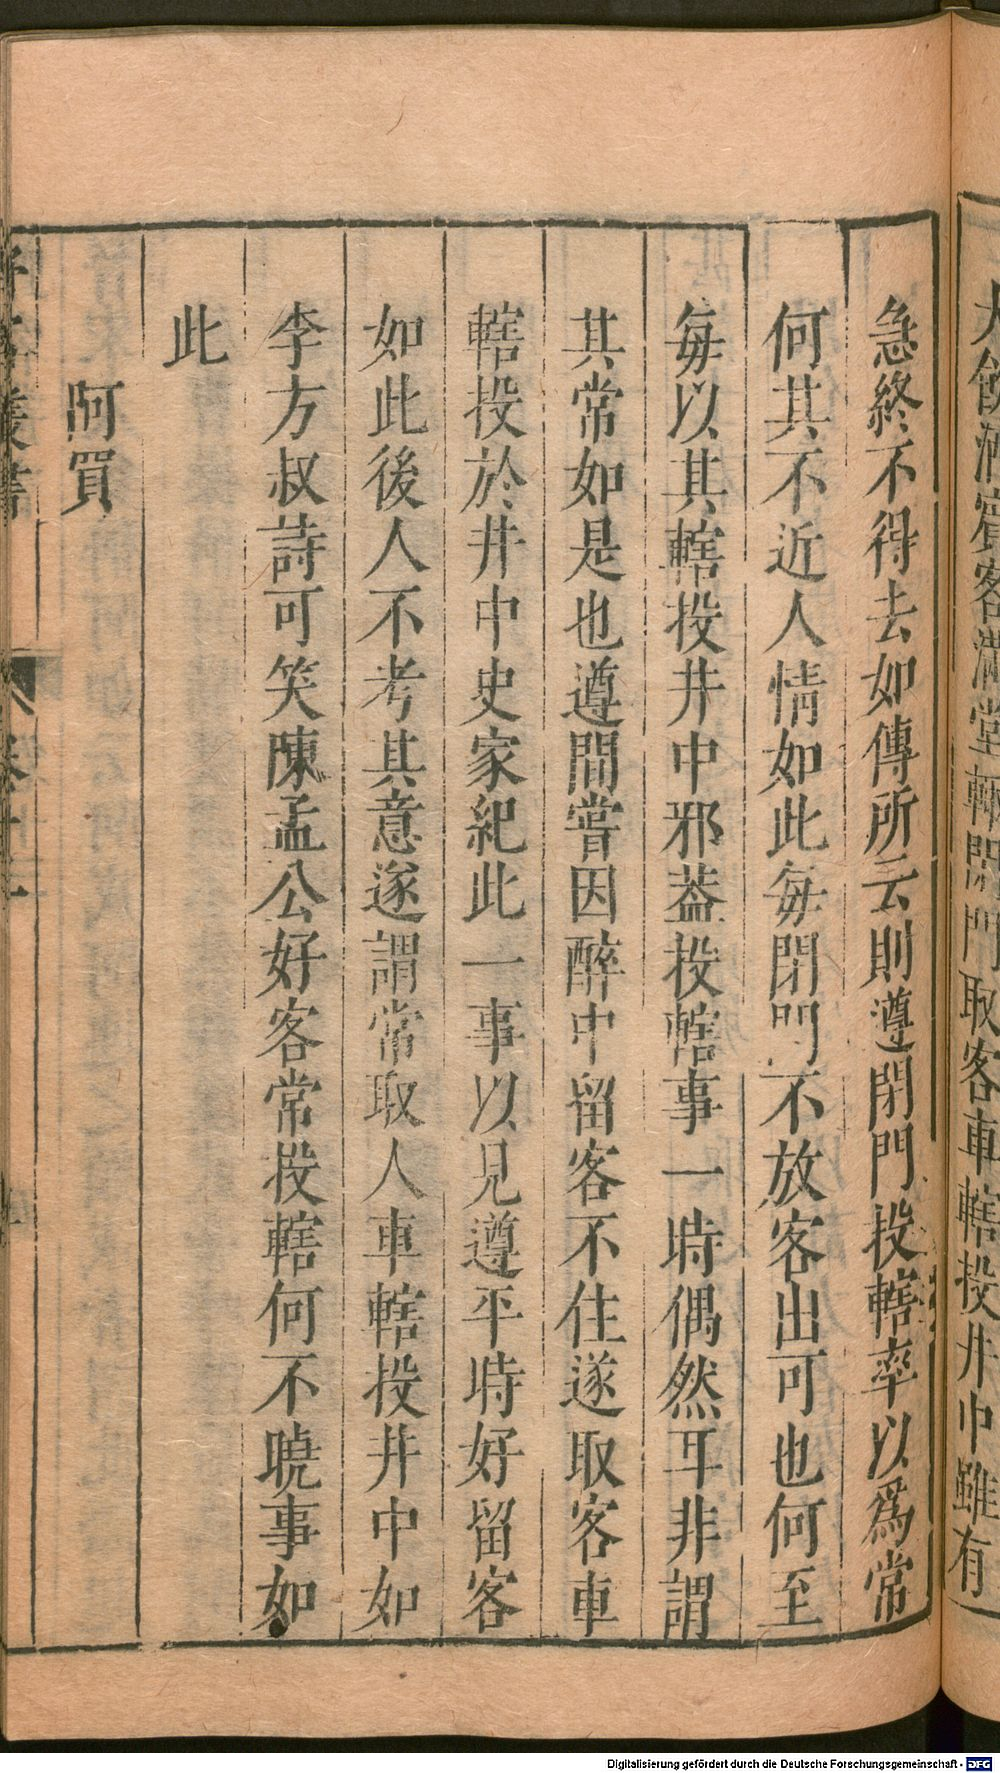 大飲酒賓客滿堂輒閉門取客車轄投井中雖有
急終不得去如傳所云則遵閉門投轄率以爲常
何其不近人情如此每閉門不放客出可也何至
每以其轄投井中邪葢投轄事一時偶然耳非謂
其常如是也遵間嘗因醉中留客不住遂取客車
轄投於井中史家紀此一事以見遵平時好留客
如此後人不考其意遂謂常取人車轄投井中如
李方叔詩可笑陳孟公好客常投轄何不曉事如
此
阿買
野客叢書
卷十
Digitalisierung gefördert durch die Deutsche Forschungsgemeinschaft - DFG